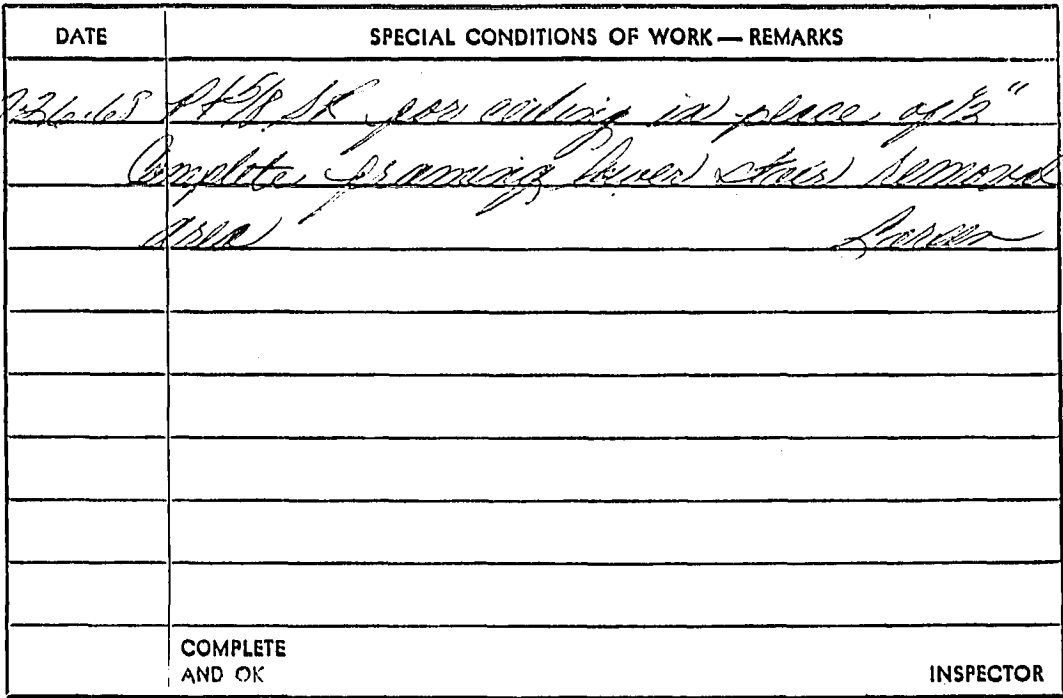 DATE SPECIAL CONDITIONS OF WORK — REMARKS
5/8 for ceiling in place of 1/2"
Complete framing lower stair
area
COMPLETE
AND OK INSPECTOR